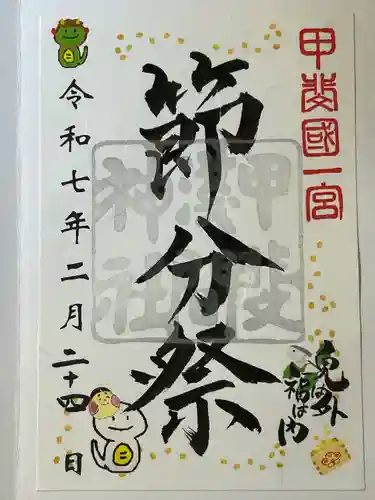 甲斐國一宮
節分祭
甲斐
神社
鬼は外
福は内
令和七年二月二十四日